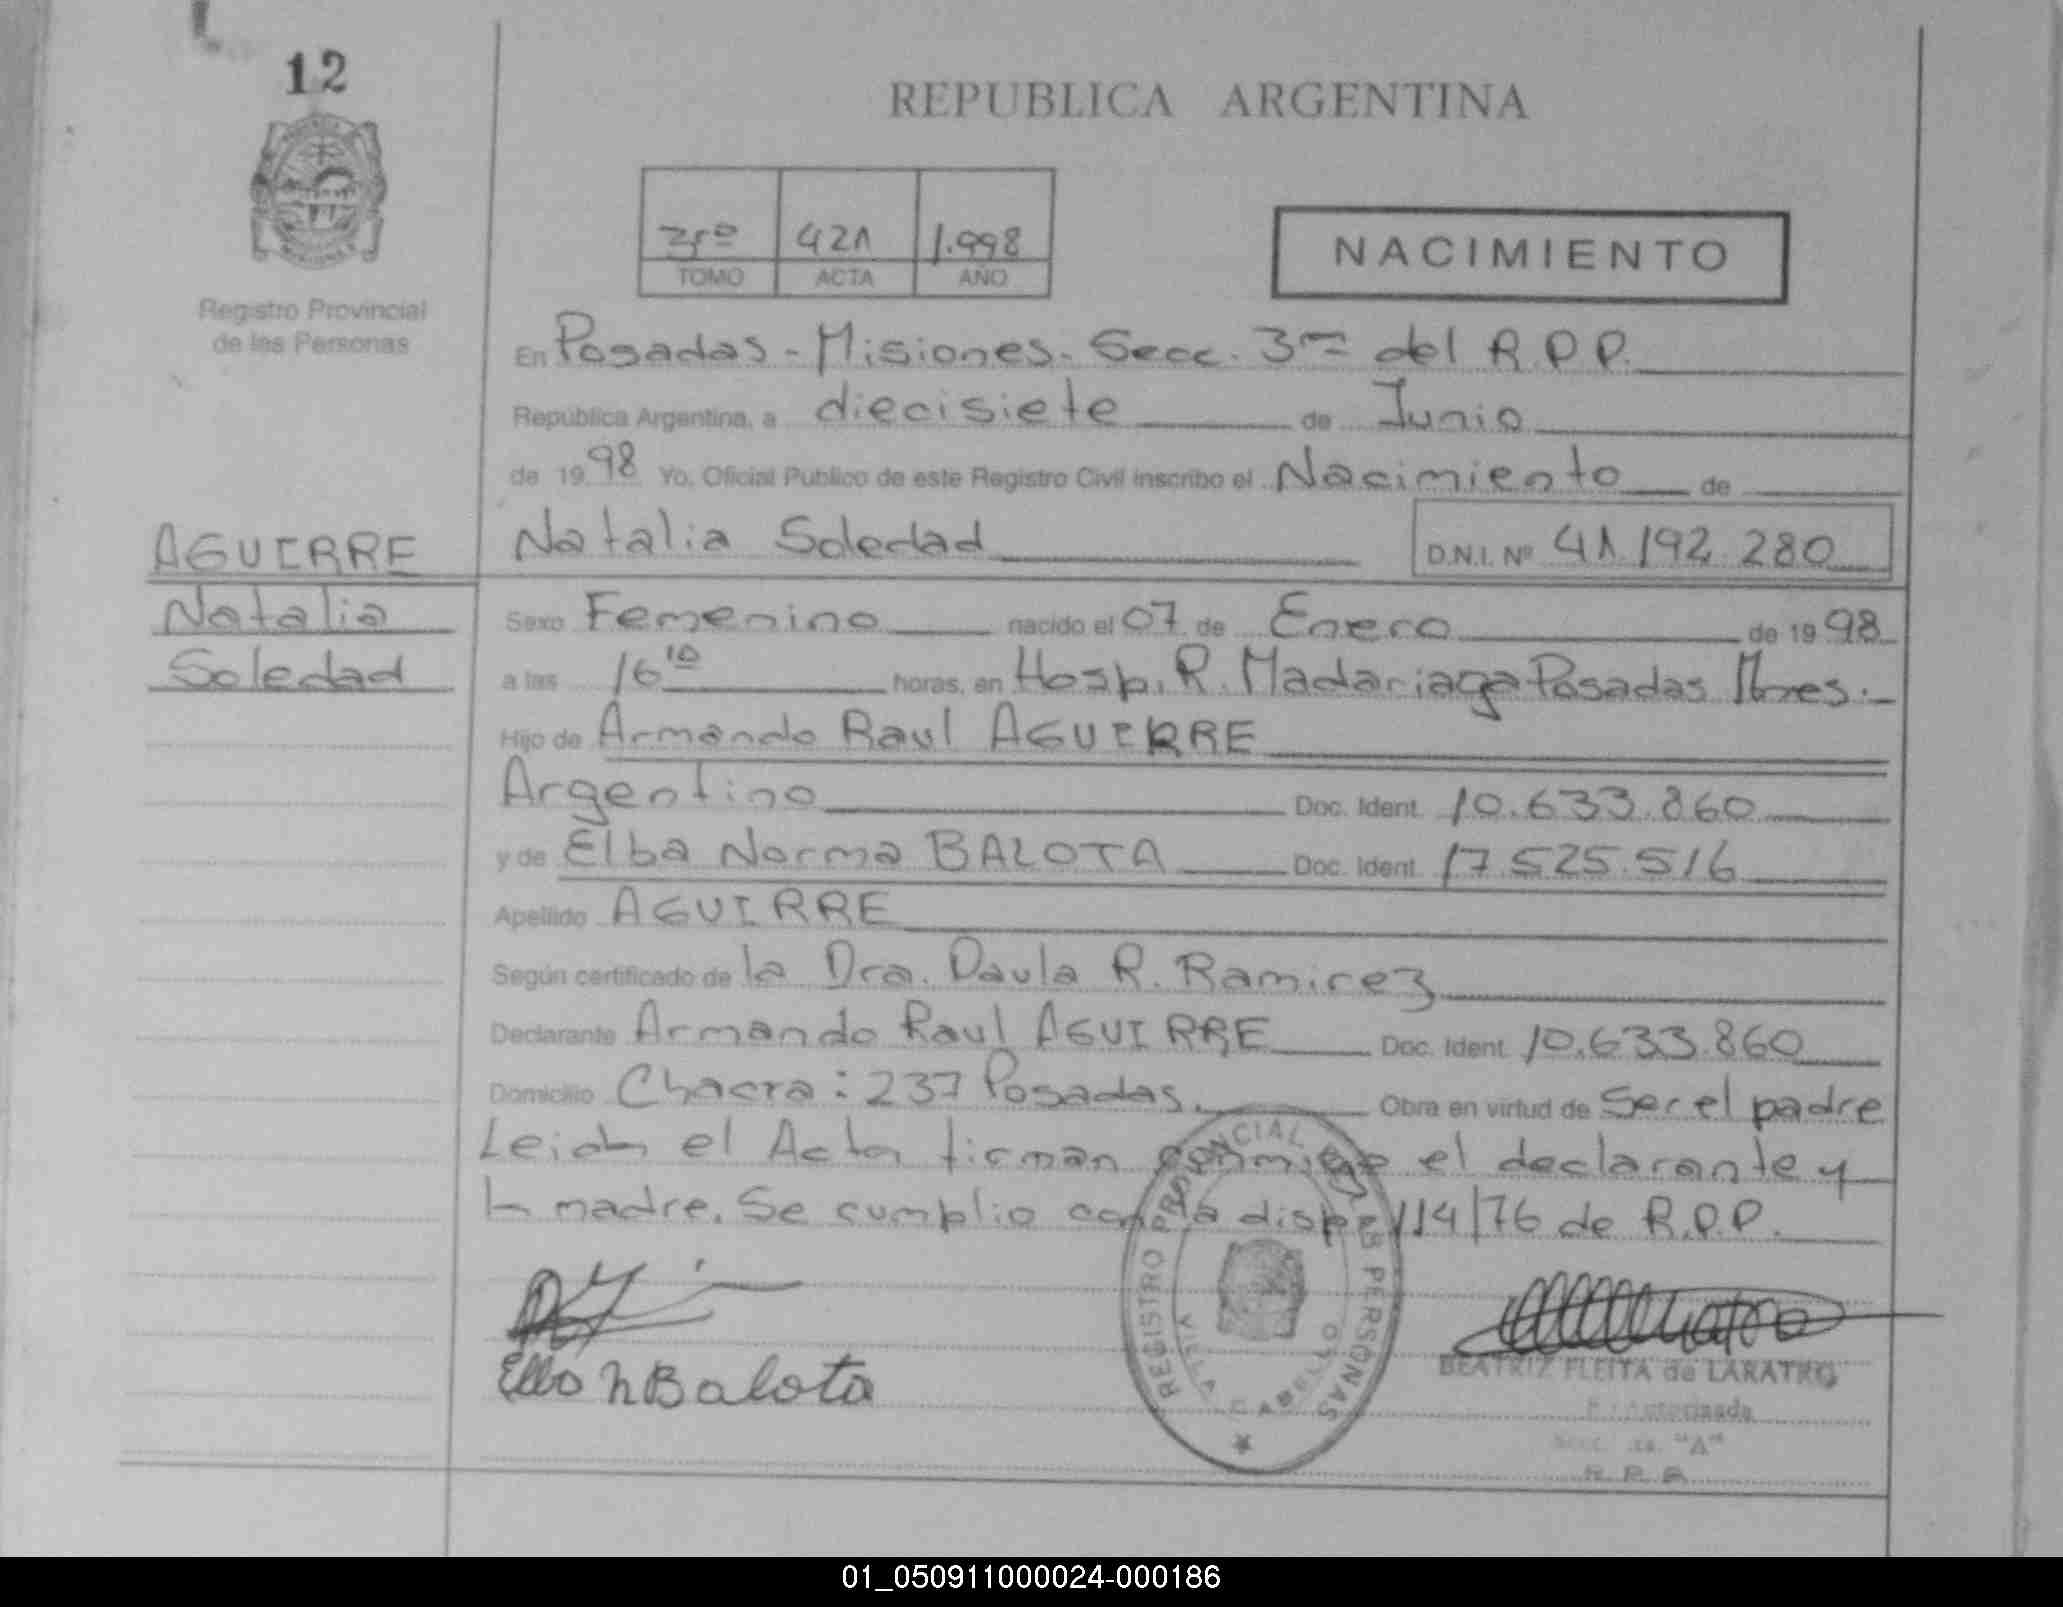 12
REPUBLICA ARGENTINA
3ro 421 1.998
TOMO ACTA AÑO
NACIMIENTO
Registro Provincial
de las Personas
En Posadas - Misiones. Secc. 3ra del R.P.P.
República Argentina, a diecisiete de Junio
de 1998 Yo, Oficial Publico de este Registro Civil inscribo el Nacimiento de
AGUIRRE
Natalia Soledad D.N.I. Nº 41.192.280
Natalia
Soledad
Sexo Femenino nacido el 07 de Enero de 1998
a las 16 10 horas, en Hosp. R. Madariaga Posadas Mnes.-
Hijo de Armando Raul AGUIRRE
Argentino Doc. Ident. 10.633.860
y de Elba Norma BALOTA Doc. Ident. 17.525.516
Apellido AGUIRRE
Según certificado de la Dra. Paula R. Ramirez
Declarante Armando Raul AGUIRRE Doc. Ident. 10.633.860
Domicilio Chacra: 237 Posadas. Obra en virtud de Ser el padre
Leida el Acta firman conmigo el declarante y
la madre. Se cumplio con la disp. 114/76 de R.P.P.
REGISTRO PROVINCIAL DE LAS PERSONAS
VILLA CABELLO
Elba N Balota
BEATRIZ FLEITA de LARATRO
Autorizada
Secc. 3ra. "A"
R. P. P.
01_050911000024-000186